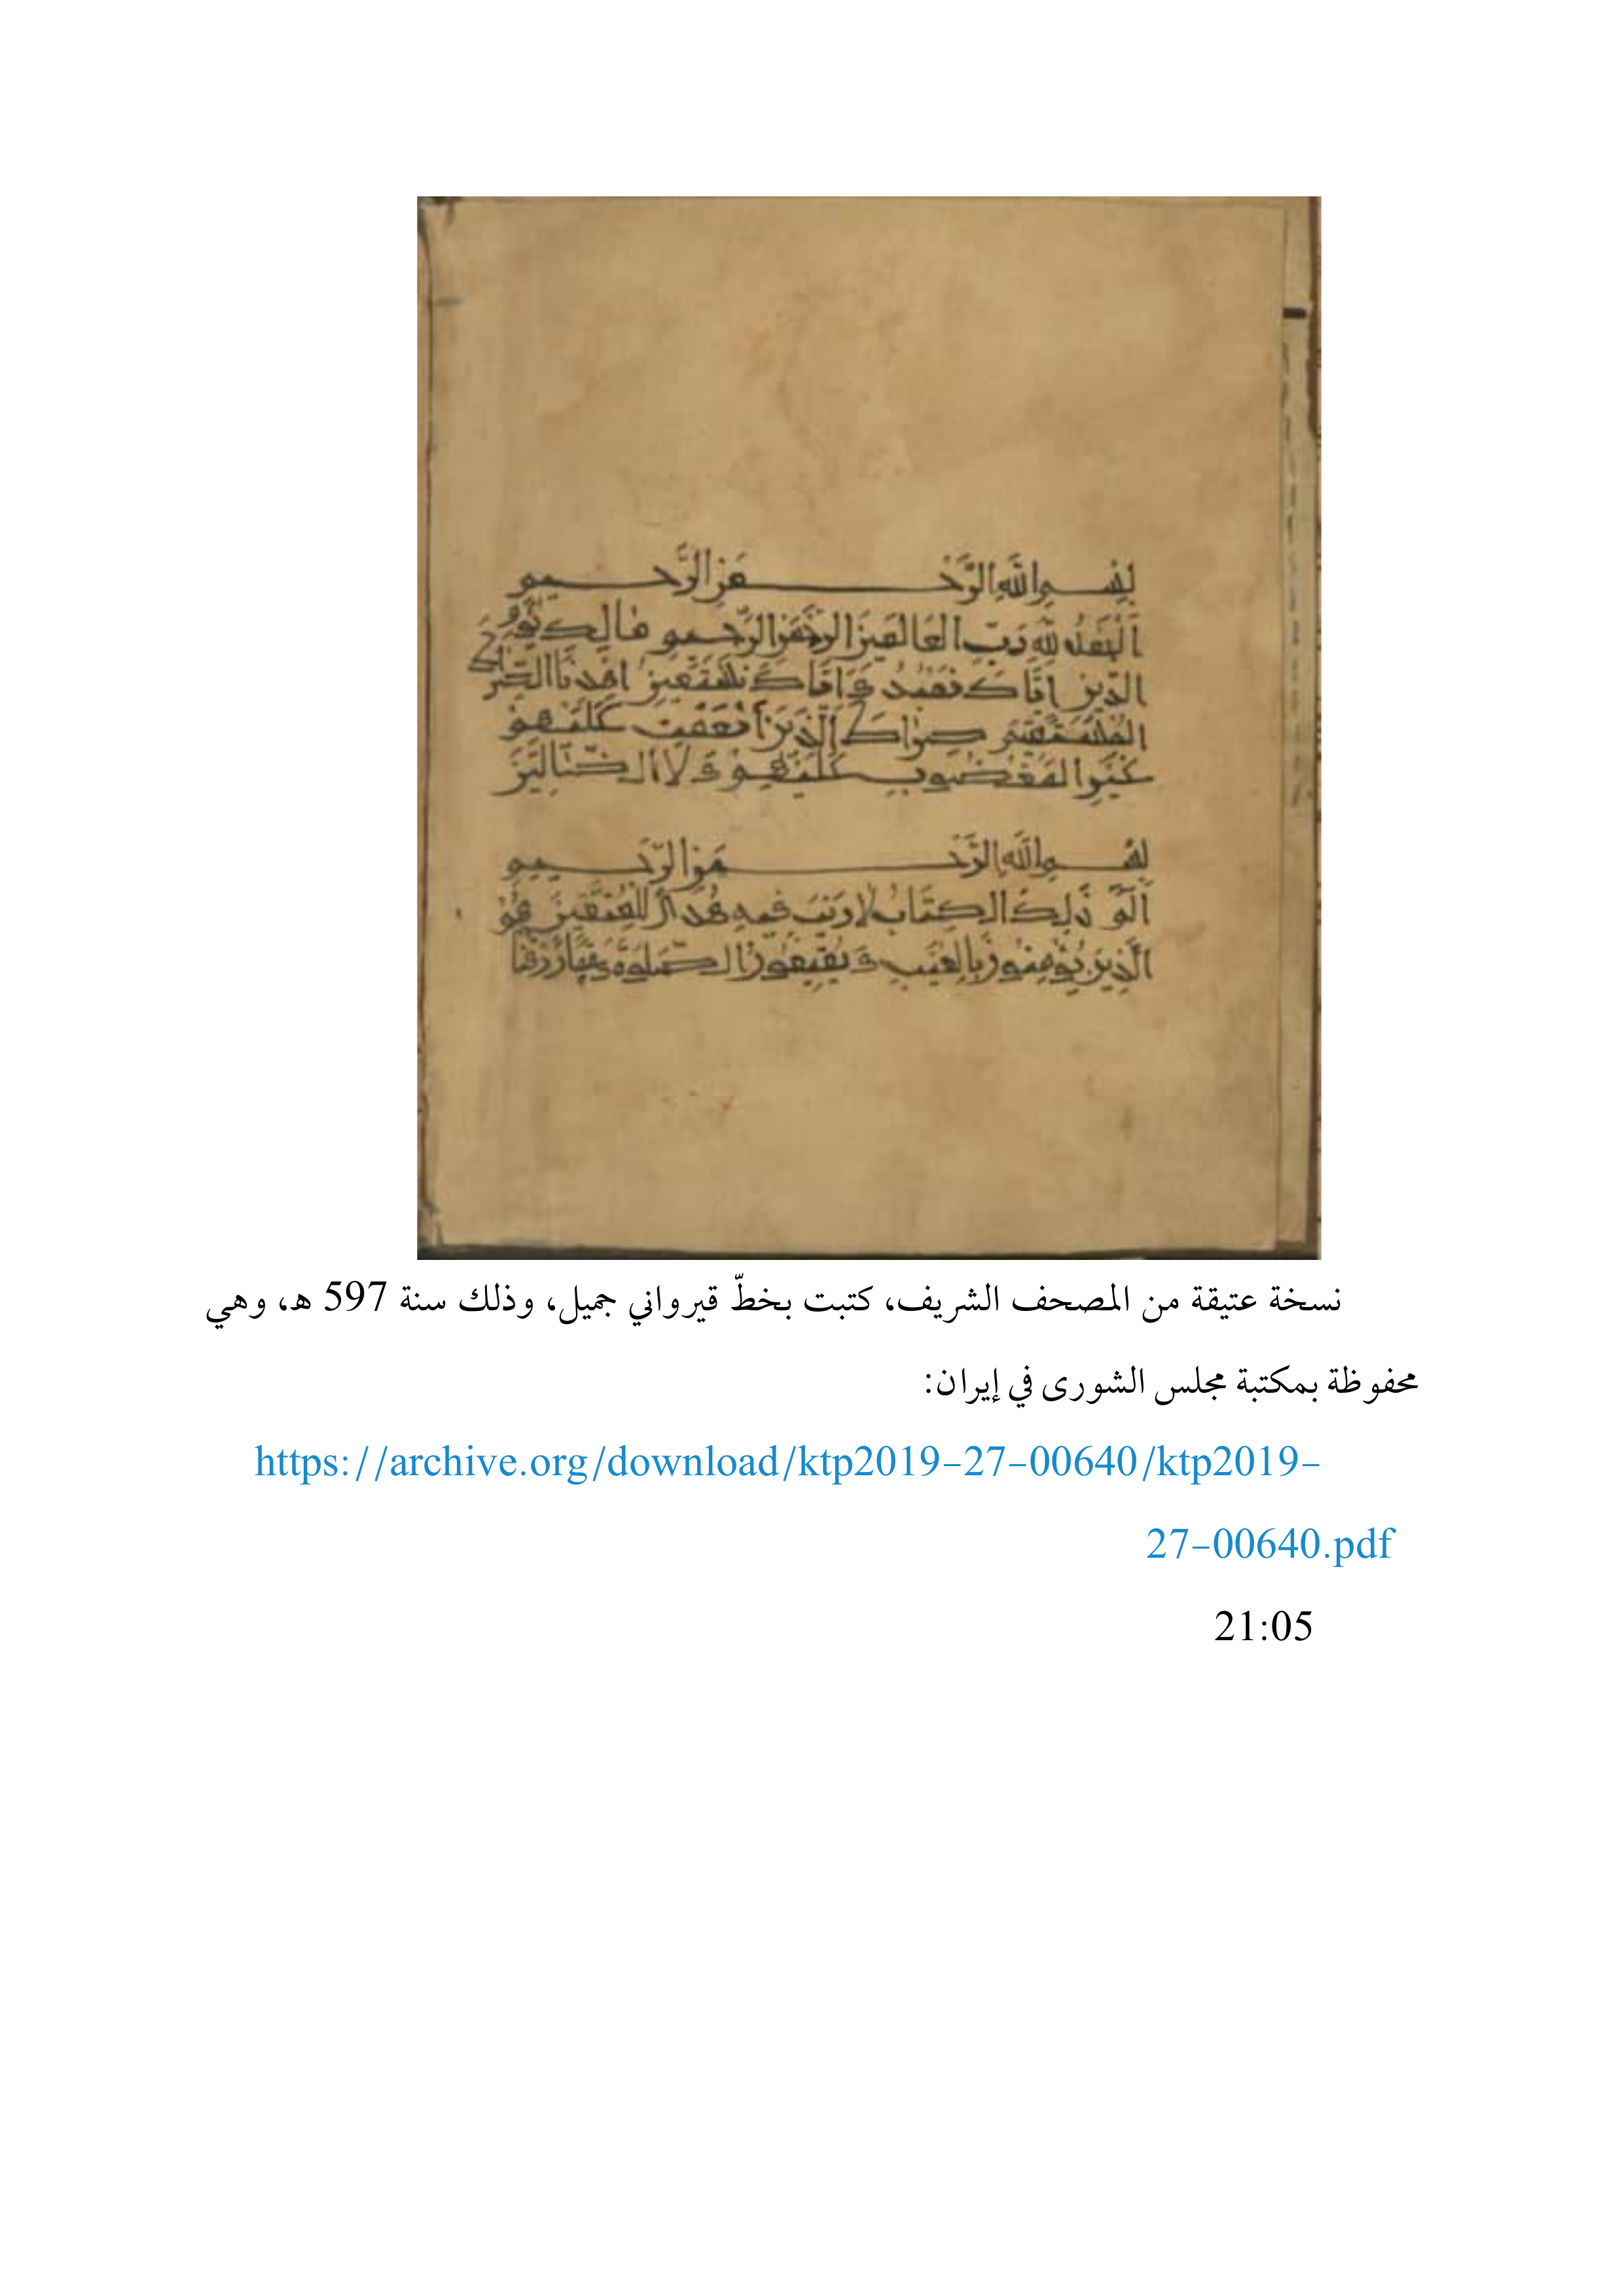 بِسْمِ اللَّهِ الرَّحْمَنِ الرَّحِيمِ
اَلْحَمْدُ لِلَّهِ رَبِّ الْعَالَمِينَ الرَّحْمَنِ الرَّحِيمِ مَالِكِ يَوْمِ
الدِّينِ اِيَّاكَ نَعْبُدُ وَاِيَّاكَ نَسْتَعِينُ اهْدِنَا الصِّرَاطَ
الْمُسْتَقِيمَ صِرَاطَ الَّذِينَ أَنْعَمْتَ عَلَيْهِمْ
غَيْرِ الْمَغْضُوبِ عَلَيْهِمْ وَلَا الضَّالِّينَ
بِسْمِ اللَّهِ الرَّحْمَنِ الرَّحِيمِ
الم ذَلِكَ الْكِتَابُ لَا رَيْبَ فِيهِ هُدًى لِلْمُتَّقِينَ
الَّذِينَ يُؤْمِنُونَ بِالْغَيْبِ وَيُقِيمُونَ الصَّلَوةَ وَمِمَّا رَزَقْنَا
نسخة عتيقة من المصحف الشريف، كتبت بخطّ قيرواني جميل، وذلك سنة 597 هـ، وهي
محفوظة بمكتبة مجلس الشورى في إيران:
https://archive.org/download/ktp2019-27-00640/ktp2019-
27-00640.pdf
21:05